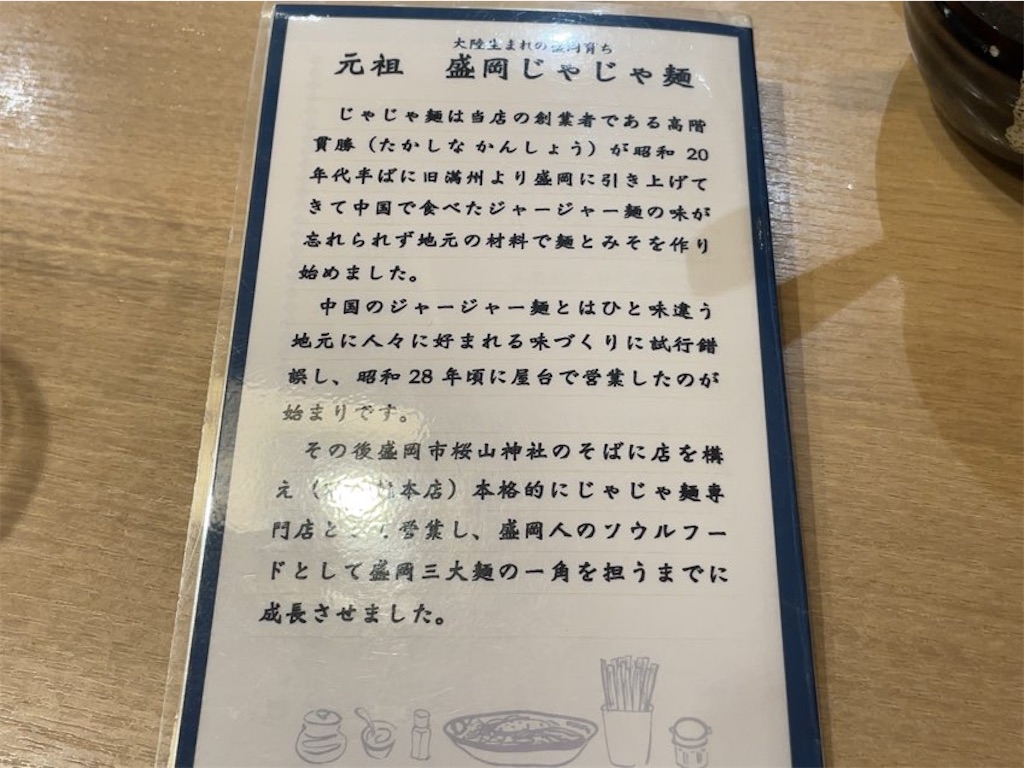 大陸生まれの盛岡育ち
元祖　盛岡じゃじゃ麺
じゃじゃ麺は当店の創業者である高階
貫勝（たかしな かんしょう）が昭和 20
年代半ばに旧満州より盛岡に引き上げて
きて中国で食べたジャージャー麺の味が
忘れられず地元の材料で麺とみそを作り
始めました。
中国のジャージャー麺とはひと味違う
地元に人々に好まれる味づくりに試行錯
誤し、昭和 28 年頃に屋台で営業したのが
始まりです。
その後盛岡市桜山神社のそばに店を構
え（本店）本格的にじゃじゃ麺専
門店として営業し、盛岡人のソウルフー
ドとして盛岡三大麺の一角を担うまでに
成長させました。